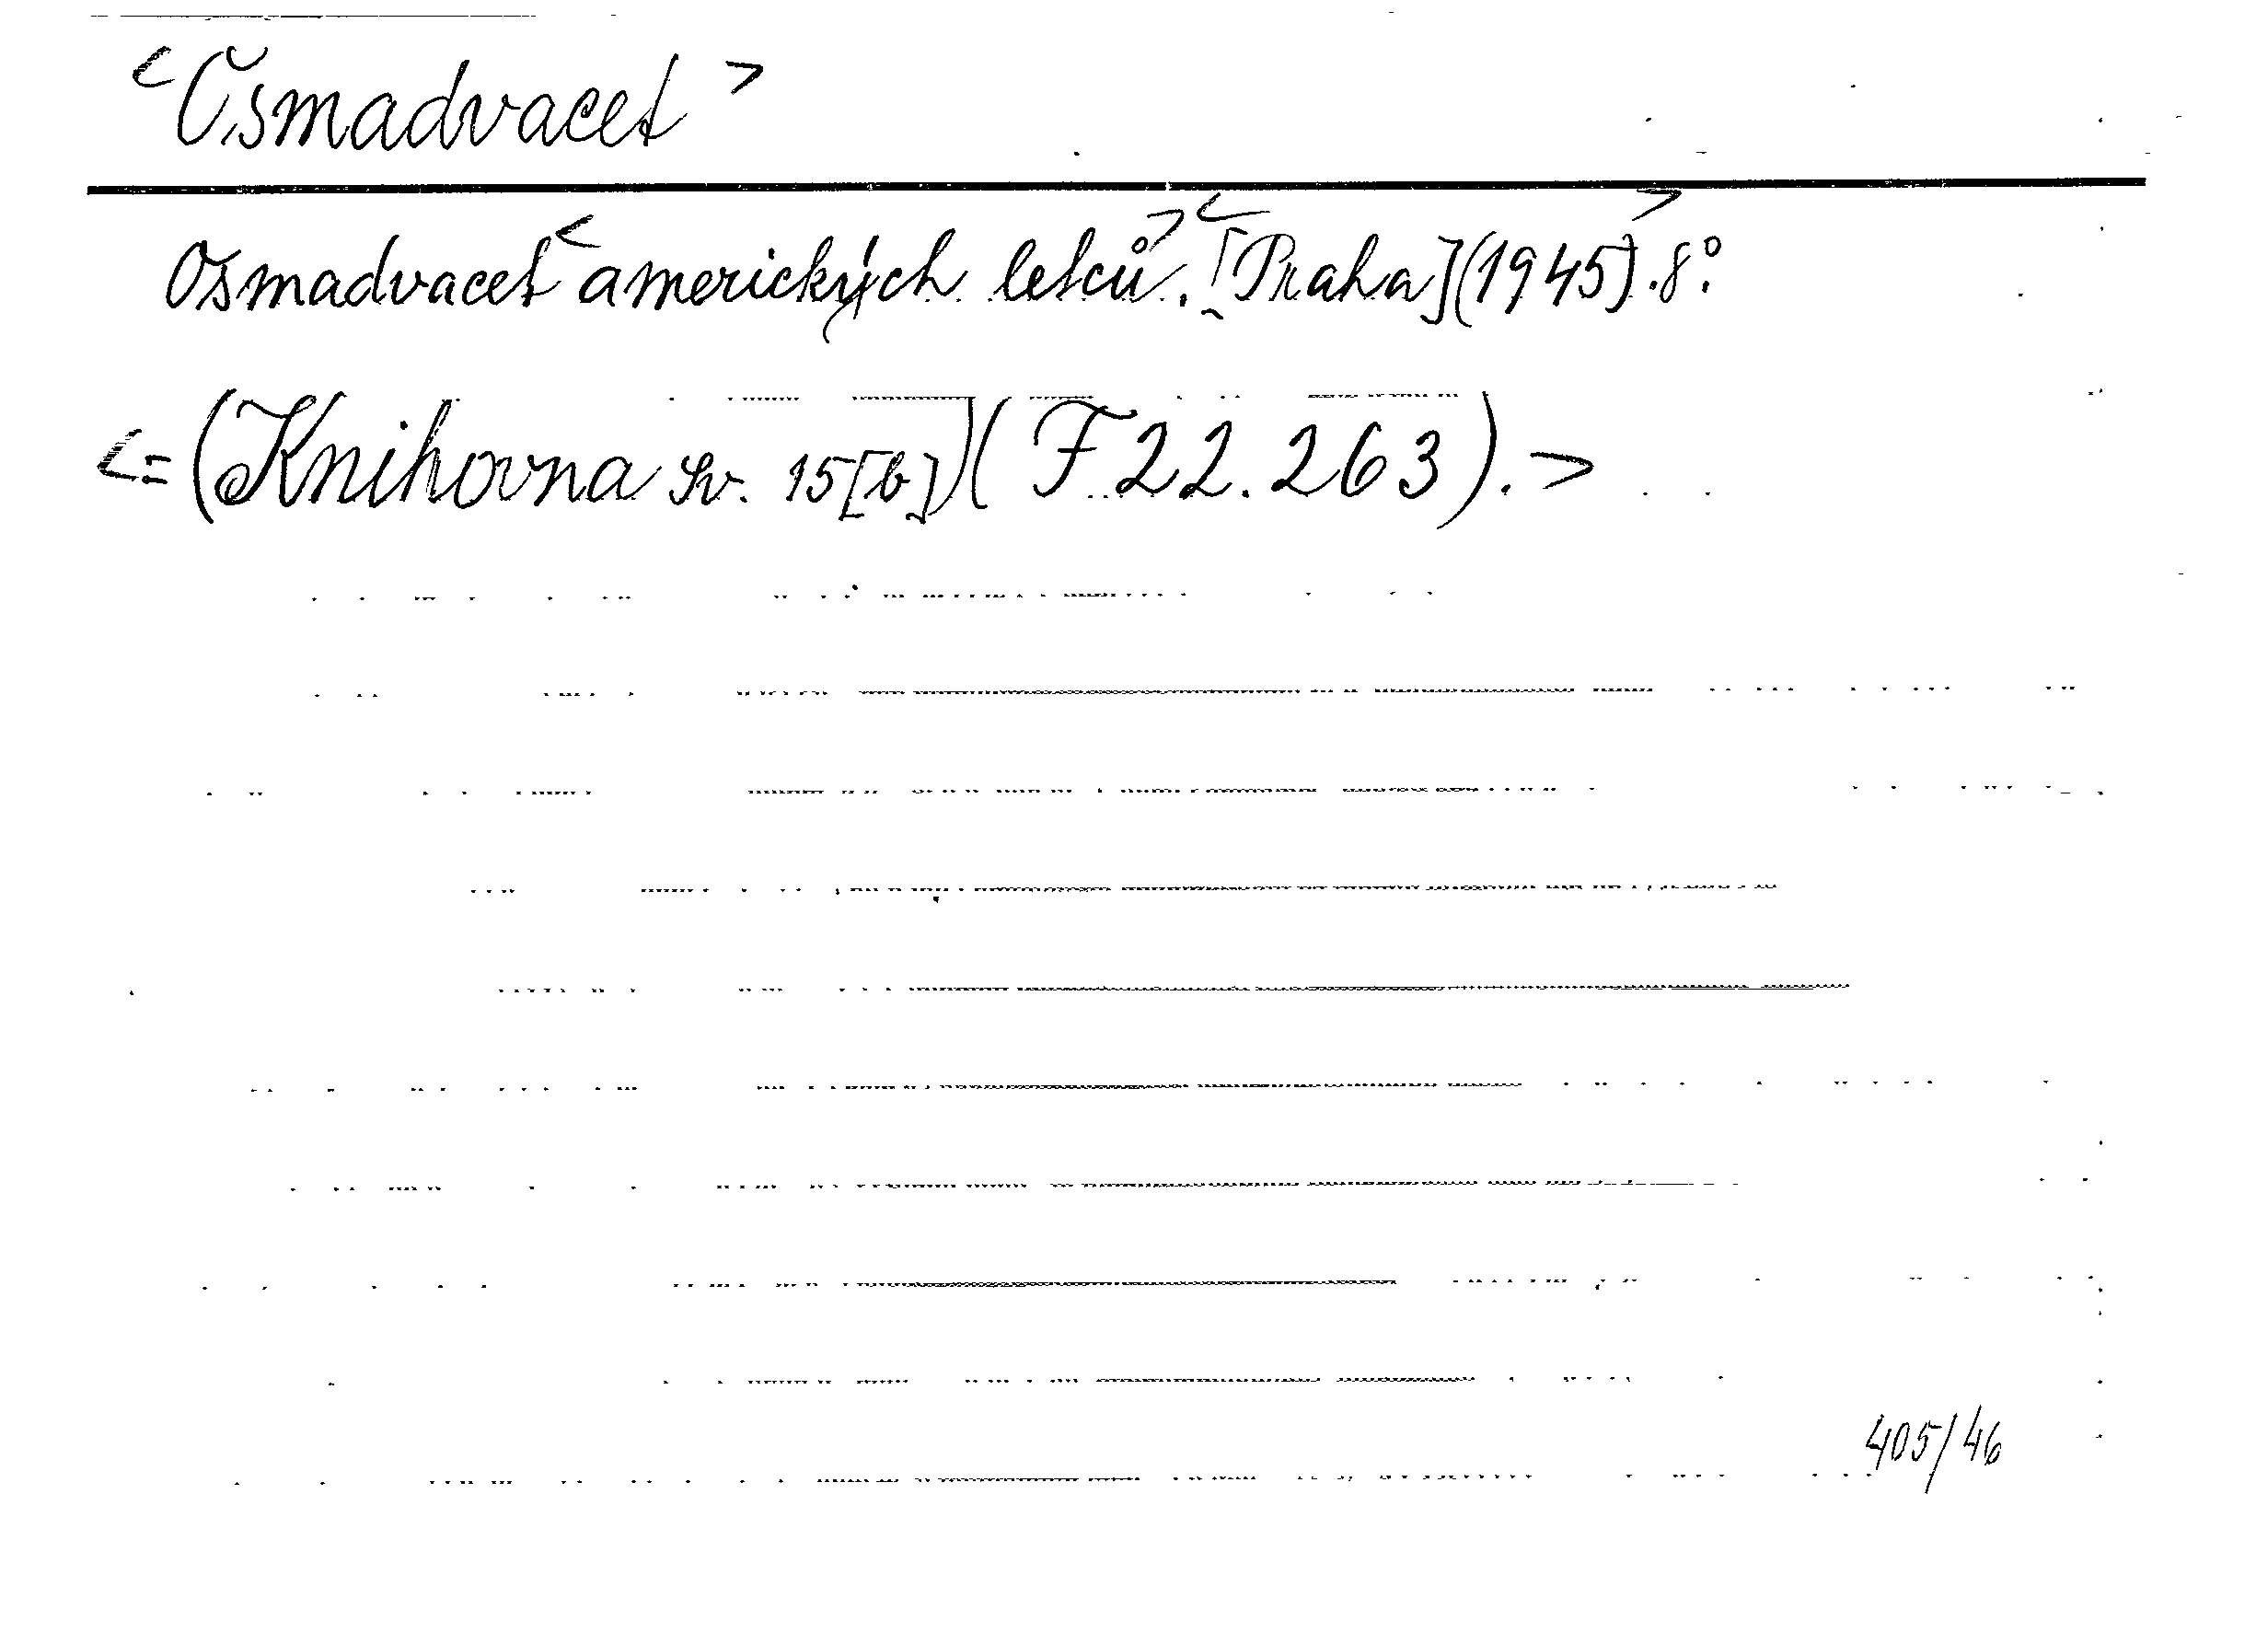 <Osmadvacet>
Osmadvacet <amerických letců.> <[Praha](1945).> 8°.
<=(Knihovna sv. 15[b])(F 22.263).>
405/46